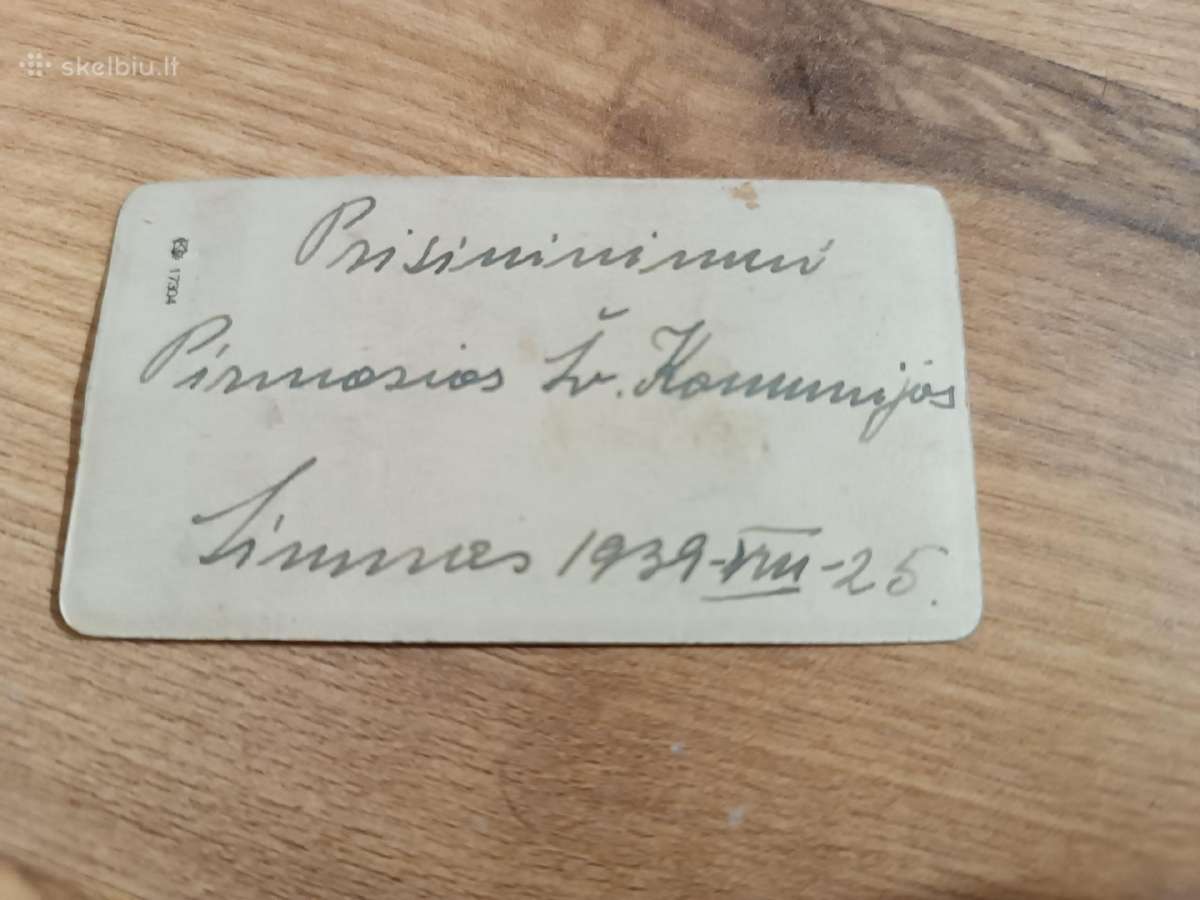 skelbiu.lt
17304
Prisiminimui
Pirmosios Šv. Komunijos
Simnas 1939-VIII-25.